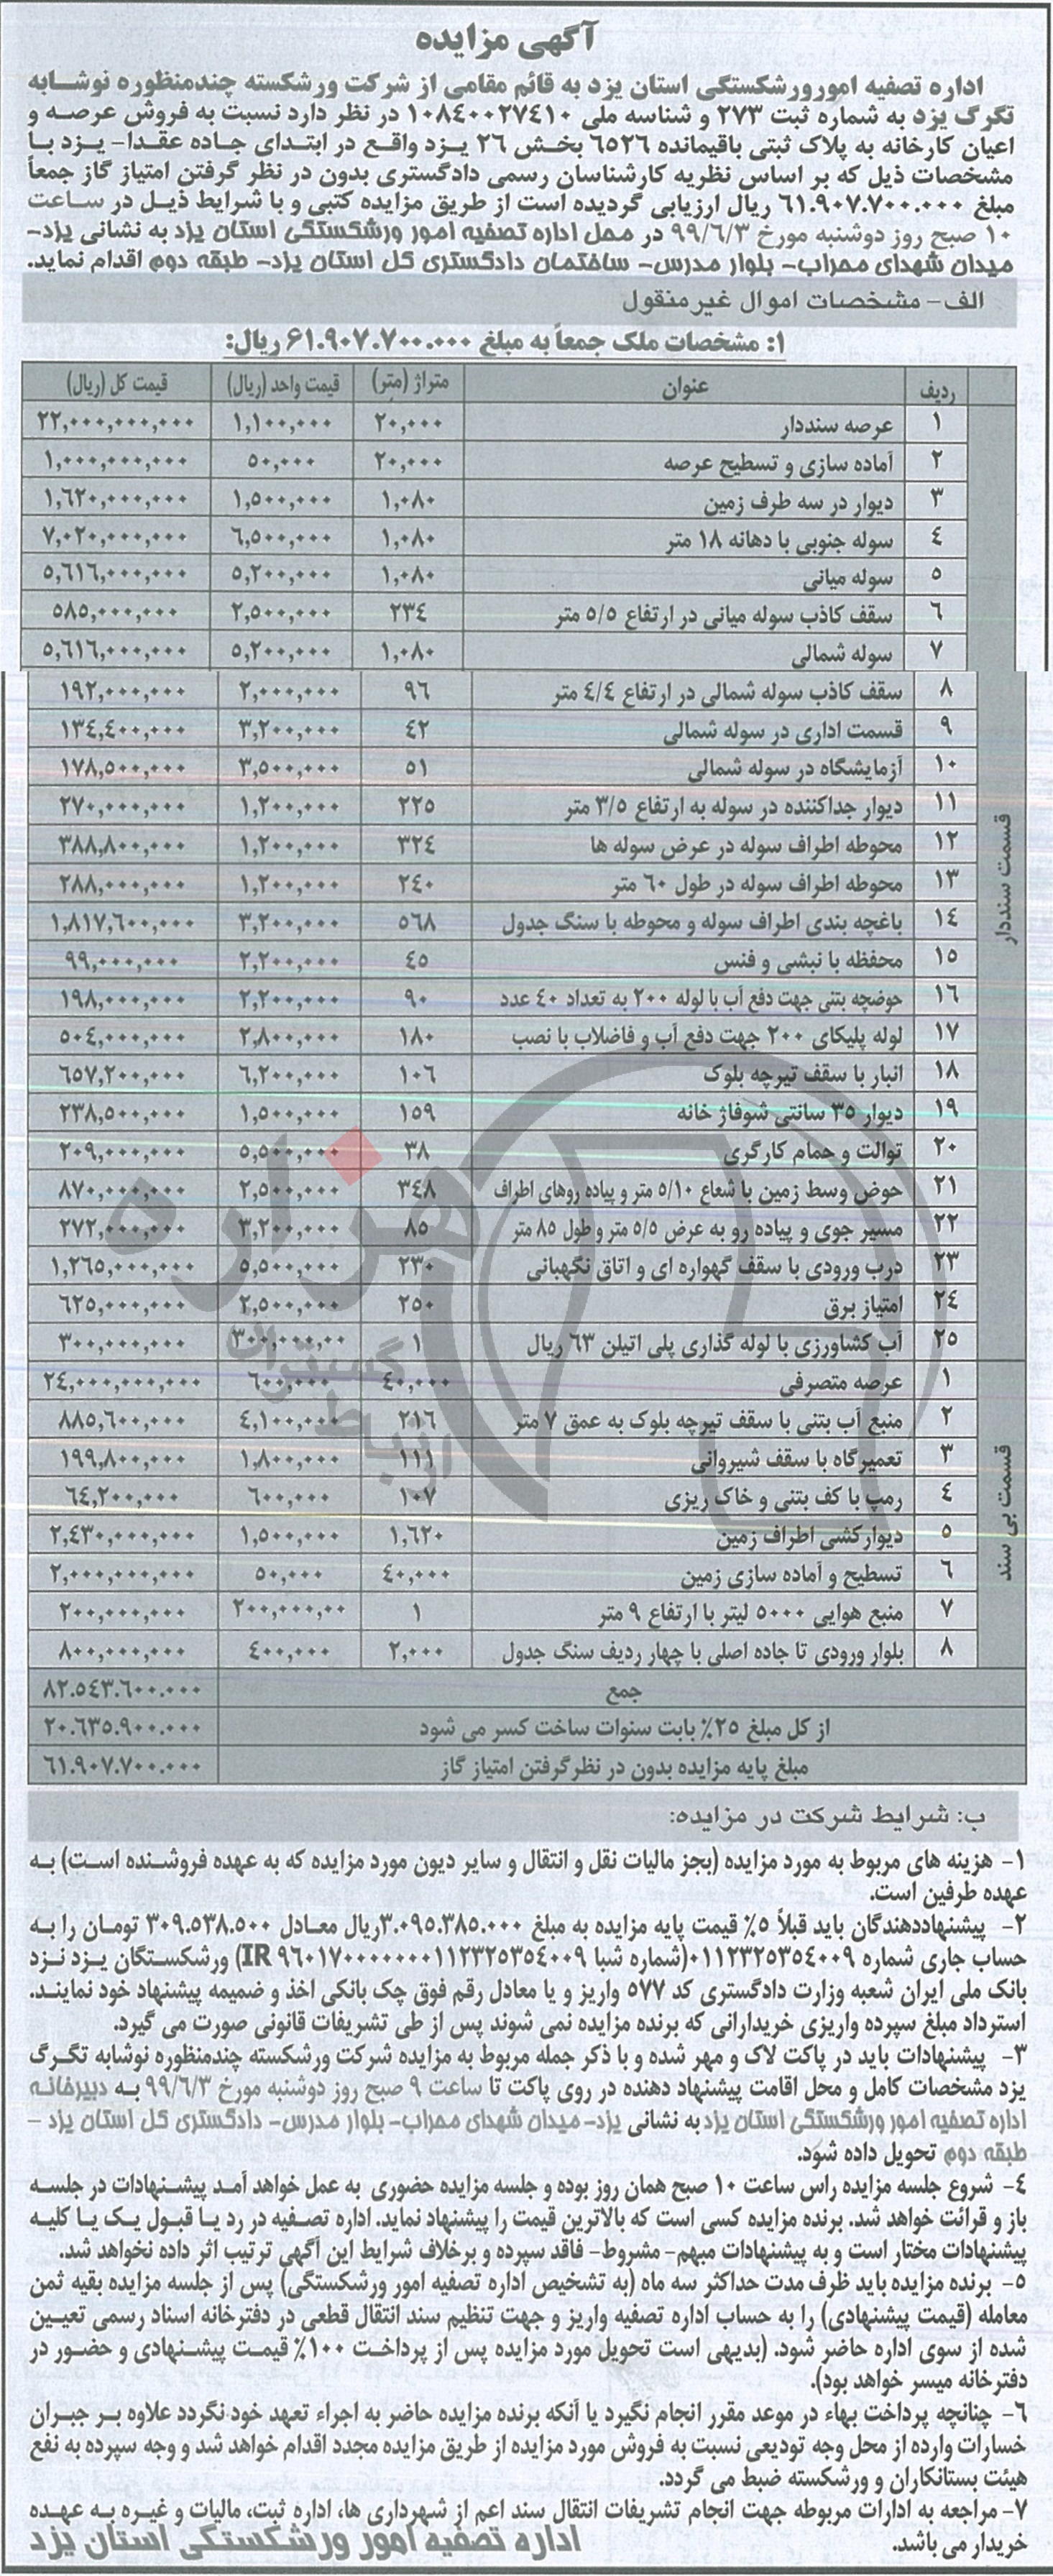 آگهی مزایده
اداره تصفیه امورورشکستگی استان یزد به قائم مقامی از شرکت ورشکسته چندمنظوره نوشابه
تگرگ یزد به شماره ثبت ۲۷۳ و شناسه ملی ۱۰۸۴۰۰۲۷۴۱۰ در نظر دارد نسبت به فروش عرصه و
اعیان کارخانه به پلاک ثبتی باقیمانده ۶۵۲۶ بخش ۲۶ یزد واقع در ابتدای جاده عقدا- یزد با
مشخصات ذیل که بر اساس نظریه کارشناسان رسمی دادگستری بدون در نظر گرفتن امتیاز گاز جمعاً
مبلغ ۶۱.۹۰۷.۷۰۰.۰۰۰ ریال ارزیابی گردیده است از طریق مزایده کتبی و با شرایط ذیل در ساعت
۱۰ صبح روز دوشنبه مورخ ۹۹/۶/۳ در محل اداره تصفیه امور ورشکستگی استان یزد به نشانی یزد-
میدان شهدای محراب- بلوار مدرس- ساختمان دادگستری کل استان یزد- طبقه دوم اقدام نماید.
الف- مشخصات اموال غیرمنقول
۱: مشخصات ملک جمعاً به مبلغ ۶۱.۹۰۷.۷۰۰.۰۰۰ ریال:
ردیف عنوان متراژ (متر) قیمت واحد (ریال) قیمت کل (ریال)
قسمت سنددار
۱ عرصه سنددار ۲۰,۰۰۰ ۱,۱۰۰,۰۰۰ ۲۲,۰۰۰,۰۰۰,۰۰۰
۲ آماده سازی و تسطیح عرصه ۲۰,۰۰۰ ۵۰,۰۰۰ ۱,۰۰۰,۰۰۰,۰۰۰
۳ دیوار در سه طرف زمین ۱,۰۸۰ ۱,۵۰۰,۰۰۰ ۱,۶۲۰,۰۰۰,۰۰۰
۴ سوله جنوبی با دهانه ۱۸ متر ۱,۰۸۰ ۶,۵۰۰,۰۰۰ ۷,۰۲۰,۰۰۰,۰۰۰
۵ سوله میانی ۱,۰۸۰ ۵,۲۰۰,۰۰۰ ۵,۶۱۶,۰۰۰,۰۰۰
۶ سقف کاذب سوله میانی در ارتفاع ۵/۵ متر ۲۳۴ ۲,۵۰۰,۰۰۰ ۵۸۵,۰۰۰,۰۰۰
۷ سوله شمالی ۱,۰۸۰ ۵,۲۰۰,۰۰۰ ۵,۶۱۶,۰۰۰,۰۰۰
۸ سقف کاذب سوله شمالی در ارتفاع ۴/۴ متر ۹۶ ۲,۰۰۰,۰۰۰ ۱۹۲,۰۰۰,۰۰۰
۹ قسمت اداری در سوله شمالی ۴۲ ۳,۲۰۰,۰۰۰ ۱۳۴,۴۰۰,۰۰۰
۱۰ آزمایشگاه در سوله شمالی ۵۱ ۳,۵۰۰,۰۰۰ ۱۷۸,۵۰۰,۰۰۰
۱۱ دیوار جداکننده در سوله به ارتفاع ۳/۵ متر ۲۲۵ ۱,۲۰۰,۰۰۰ ۲۷۰,۰۰۰,۰۰۰
۱۲ محوطه اطراف سوله در عرض سوله ها ۳۲۴ ۱,۲۰۰,۰۰۰ ۳۸۸,۸۰۰,۰۰۰
۱۳ محوطه اطراف سوله در طول ۶۰ متر ۲۴۰ ۱,۲۰۰,۰۰۰ ۲۸۸,۰۰۰,۰۰۰
۱۴ باغچه بندی اطراف سوله و محوطه با سنگ جدول ۵۶۸ ۳,۲۰۰,۰۰۰ ۱,۸۱۷,۶۰۰,۰۰۰
۱۵ محفظه با نبشی و فنس ۴۵ ۲,۲۰۰,۰۰۰ ۹۹,۰۰۰,۰۰۰
۱۶ حوضچه بتنی جهت دفع آب با لوله ۲۰۰ به تعداد ۴۰ عدد ۹۰ ۲,۲۰۰,۰۰۰ ۱۹۸,۰۰۰,۰۰۰
۱۷ لوله پلیکای ۲۰۰ جهت دفع آب و فاضلاب با نصب ۱۸۰ ۲,۸۰۰,۰۰۰ ۵۰۴,۰۰۰,۰۰۰
۱۸ انبار با سقف تیرچه بلوک ۱۰۶ ۶,۲۰۰,۰۰۰ ۶۵۷,۲۰۰,۰۰۰
۱۹ دیوار ۳۵ سانتی شوفاژ خانه ۱۵۹ ۱,۵۰۰,۰۰۰ ۲۳۸,۵۰۰,۰۰۰
۲۰ توالت و حمام کارگری ۳۸ ۵,۵۰۰,۰۰۰ ۲۰۹,۰۰۰,۰۰۰
۲۱ حوض وسط زمین با شعاع ۵/۱۰ متر و پیاده روهای اطراف ۳۴۸ ۲,۵۰۰,۰۰۰ ۸۷۰,۰۰۰,۰۰۰
۲۲ مسیر جوی و پیاده رو به عرض ۵/۵ متر و طول ۸۵ متر ۸۵ ۳,۲۰۰,۰۰۰ ۲۷۲,۰۰۰,۰۰۰
۲۳ درب ورودی با سقف گهواره ای و اتاق نگهبانی ۲۳۰ ۵,۵۰۰,۰۰۰ ۱,۲۶۵,۰۰۰,۰۰۰
۲۴ امتیاز برق ۲۵۰ ۲,۵۰۰,۰۰۰ ۶۲۵,۰۰۰,۰۰۰
۲۵ آب کشاورزی با لوله گذاری پلی اتیلن ۶۳ ریال ۱ ۳۰۰,۰۰۰,۰۰ ۳۰۰,۰۰۰,۰۰۰
قسمت بی سند
۱ عرصه متصرفی ۴۰,۰۰۰ ۶۰۰,۰۰۰ ۲۴,۰۰۰,۰۰۰,۰۰۰
۲ منبع آب بتنی با سقف تیرچه بلوک به عمق ۷ متر ۲۱۶ ۴,۱۰۰,۰۰۰ ۸۸۵,۶۰۰,۰۰۰
۳ تعمیرگاه با سقف شیروانی ۱۱۱ ۱,۸۰۰,۰۰۰ ۱۹۹,۸۰۰,۰۰۰
۴ رمپ با کف بتنی و خاک ریزی ۱۰۷ ۶۰۰,۰۰۰ ۶۴,۲۰۰,۰۰۰
۵ دیوارکشی اطراف زمین ۱,۶۲۰ ۱,۵۰۰,۰۰۰ ۲,۴۳۰,۰۰۰,۰۰۰
۶ تسطیح و آماده سازی زمین ۴۰,۰۰۰ ۵۰,۰۰۰ ۲,۰۰۰,۰۰۰,۰۰۰
۷ منبع هوایی ۵۰۰۰ لیتر با ارتفاع ۹ متر ۱ ۲۰۰,۰۰۰,۰۰ ۲۰۰,۰۰۰,۰۰۰
۸ بلوار ورودی تا جاده اصلی با چهار ردیف سنگ جدول ۲,۰۰۰ ۴۰۰,۰۰۰ ۸۰۰,۰۰۰,۰۰۰
جمع ۸۲.۵۴۳.۶۰۰.۰۰۰
از کل مبلغ ۲۵٪ بابت سنوات ساخت کسر می شود ۲۰.۶۳۵.۹۰۰.۰۰۰
مبلغ پایه مزایده بدون در نظرگرفتن امتیاز گاز ۶۱.۹۰۷.۷۰۰.۰۰۰
هزاره
گستران
ارتباط
ب: شرایط شرکت در مزایده:
۱- هزینه های مربوط به مورد مزایده (بجز مالیات نقل و انتقال و سایر دیون مورد مزایده که به عهده فروشنده است) به
عهده طرفین است.
۲- پیشنهاددهندگان باید قبلاً ۵٪ قیمت پایه مزایده به مبلغ ۳.۰۹۵.۳۸۵.۰۰۰ریال معادل ۳۰۹.۵۳۸.۵۰۰ تومان را به
حساب جاری شماره ۰۱۱۲۳۲۵۳۵۴۰۰۹(شماره شبا IR ۹۶۰۱۷۰۰۰۰۰۰۰۱۱۲۳۲۵۳۵۴۰۰۹) ورشکستگان یزد نزد
بانک ملی ایران شعبه وزارت دادگستری کد ۵۷۷ واریز و یا معادل رقم فوق چک بانکی اخذ و ضمیمه پیشنهاد خود نمایند.
استرداد مبلغ سپرده واریزی خریدارانی که برنده مزایده نمی شوند پس از طی تشریفات قانونی صورت می گیرد.
۳- پیشنهادات باید در پاکت لاک و مهر شده و با ذکر جمله مربوط به مزایده شرکت ورشکسته چندمنظوره نوشابه تگرگ
یزد مشخصات کامل و محل اقامت پیشنهاد دهنده در روی پاکت تا ساعت ۹ صبح روز دوشنبه مورخ ۹۹/۶/۳ به دبیرخانه
اداره تصفیه امور ورشکستگی استان یزد به نشانی یزد- میدان شهدای محراب- بلوار مدرس- دادگستری کل استان یزد -
طبقه دوم تحویل داده شود.
۴- شروع جلسه مزایده راس ساعت ۱۰ صبح همان روز بوده و جلسه مزایده حضوری به عمل خواهد آمد پیشنهادات در جلسه
باز و قرائت خواهد شد. برنده مزایده کسی است که بالاترین قیمت را پیشنهاد نماید. اداره تصفیه در رد یا قبول یک یا کلیه
پیشنهادات مختار است و به پیشنهادات مبهم- مشروط- فاقد سپرده و برخلاف شرایط این آگهی ترتیب اثر داده نخواهد شد.
۵- برنده مزایده باید ظرف مدت حداکثر سه ماه (به تشخیص اداره تصفیه امور ورشکستگی) پس از جلسه مزایده بقیه ثمن
معامله (قیمت پیشنهادی) را به حساب اداره تصفیه واریز و جهت تنظیم سند انتقال قطعی در دفترخانه اسناد رسمی تعیین
شده از سوی اداره حاضر شود. (بدیهی است تحویل مورد مزایده پس از پرداخت ۱۰۰٪ قیمت پیشنهادی و حضور در
دفترخانه میسر خواهد بود).
۶- چنانچه پرداخت بهاء در موعد مقرر انجام نگیرد یا آنکه برنده مزایده حاضر به اجراء تعهد خود نگردد علاوه بر جبران
خسارات وارده از محل وجه تودیعی نسبت به فروش مورد مزایده از طریق مزایده مجدد اقدام خواهد شد و وجه سپرده به نفع
هیئت بستانکاران و ورشکسته ضبط می گردد.
۷- مراجعه به ادارات مربوطه جهت انجام تشریفات انتقال سند اعم از شهرداری ها، اداره ثبت، مالیات و غیره به عهده
خریدار می باشد.
اداره تصفیه امور ورشکستگی استان یزد